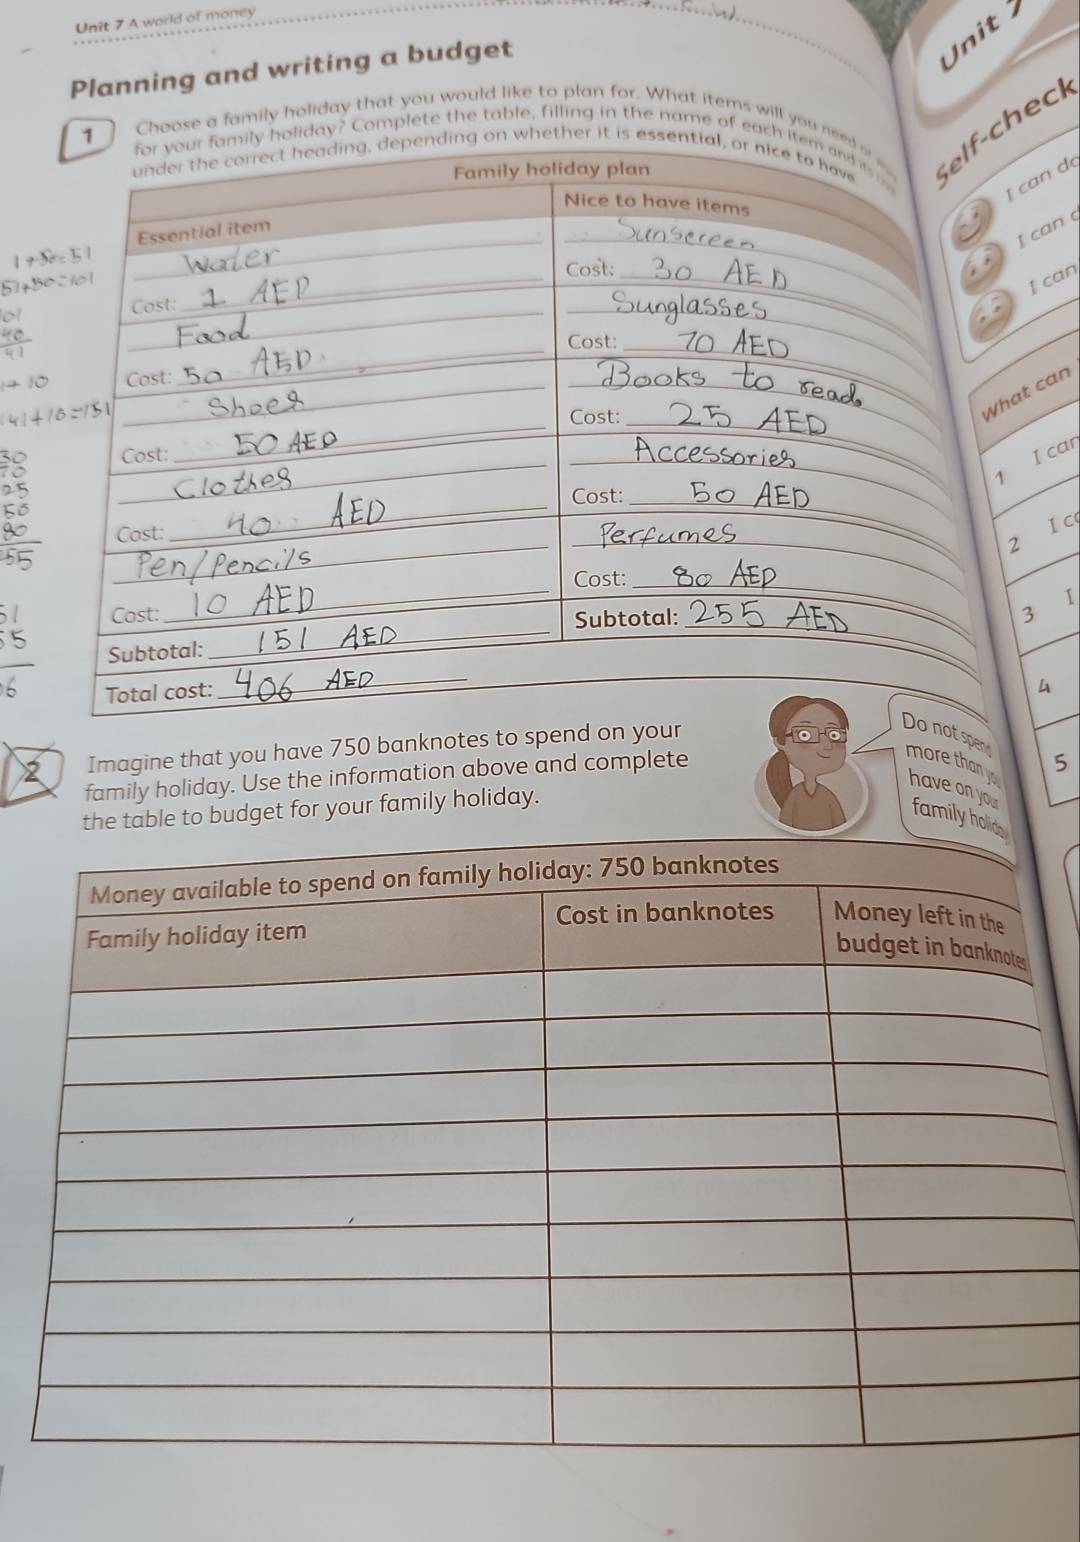 Unit 7 A world of money
Planning and writing a budget
1 Choose a family holiday that you would like to plan for. What items will you need
for your family holiday? Complete the table, filling in the name of each item and its
under the correct heading, depending on whether it is essential, or nice to have
Family holiday plan
Essential item
Nice to have items
Water
Cost: 1 AED
Food
Cost: 50 AED
Shoes
Cost: 50 AED
Clothes
Cost: 40 AED
Pen/Pencils
Cost: 10 AED
Subtotal: 151 AED
Total cost: 406 AED
Sunscreen
Cost: 30 AED
Sunglasses
Cost: 70 AED
Books to read
Cost: 25 AED
Accessories
Cost: 50 AED
Perfumes
Cost: 80 AED
Subtotal: 255 AED
51+50=101
141+10=151
30
70
25
50
80
255
2 Imagine that you have 750 banknotes to spend on your
family holiday. Use the information above and complete
the table to budget for your family holiday.
Do not spend
more than you
have on your
family holiday
Money available to spend on family holiday: 750 banknotes
Family holiday item
Cost in banknotes
Money left in the
budget in banknotes
Unit 7
Self-check
I can do
I can
I can
What can
1 I can
2 I
3 I
4
5